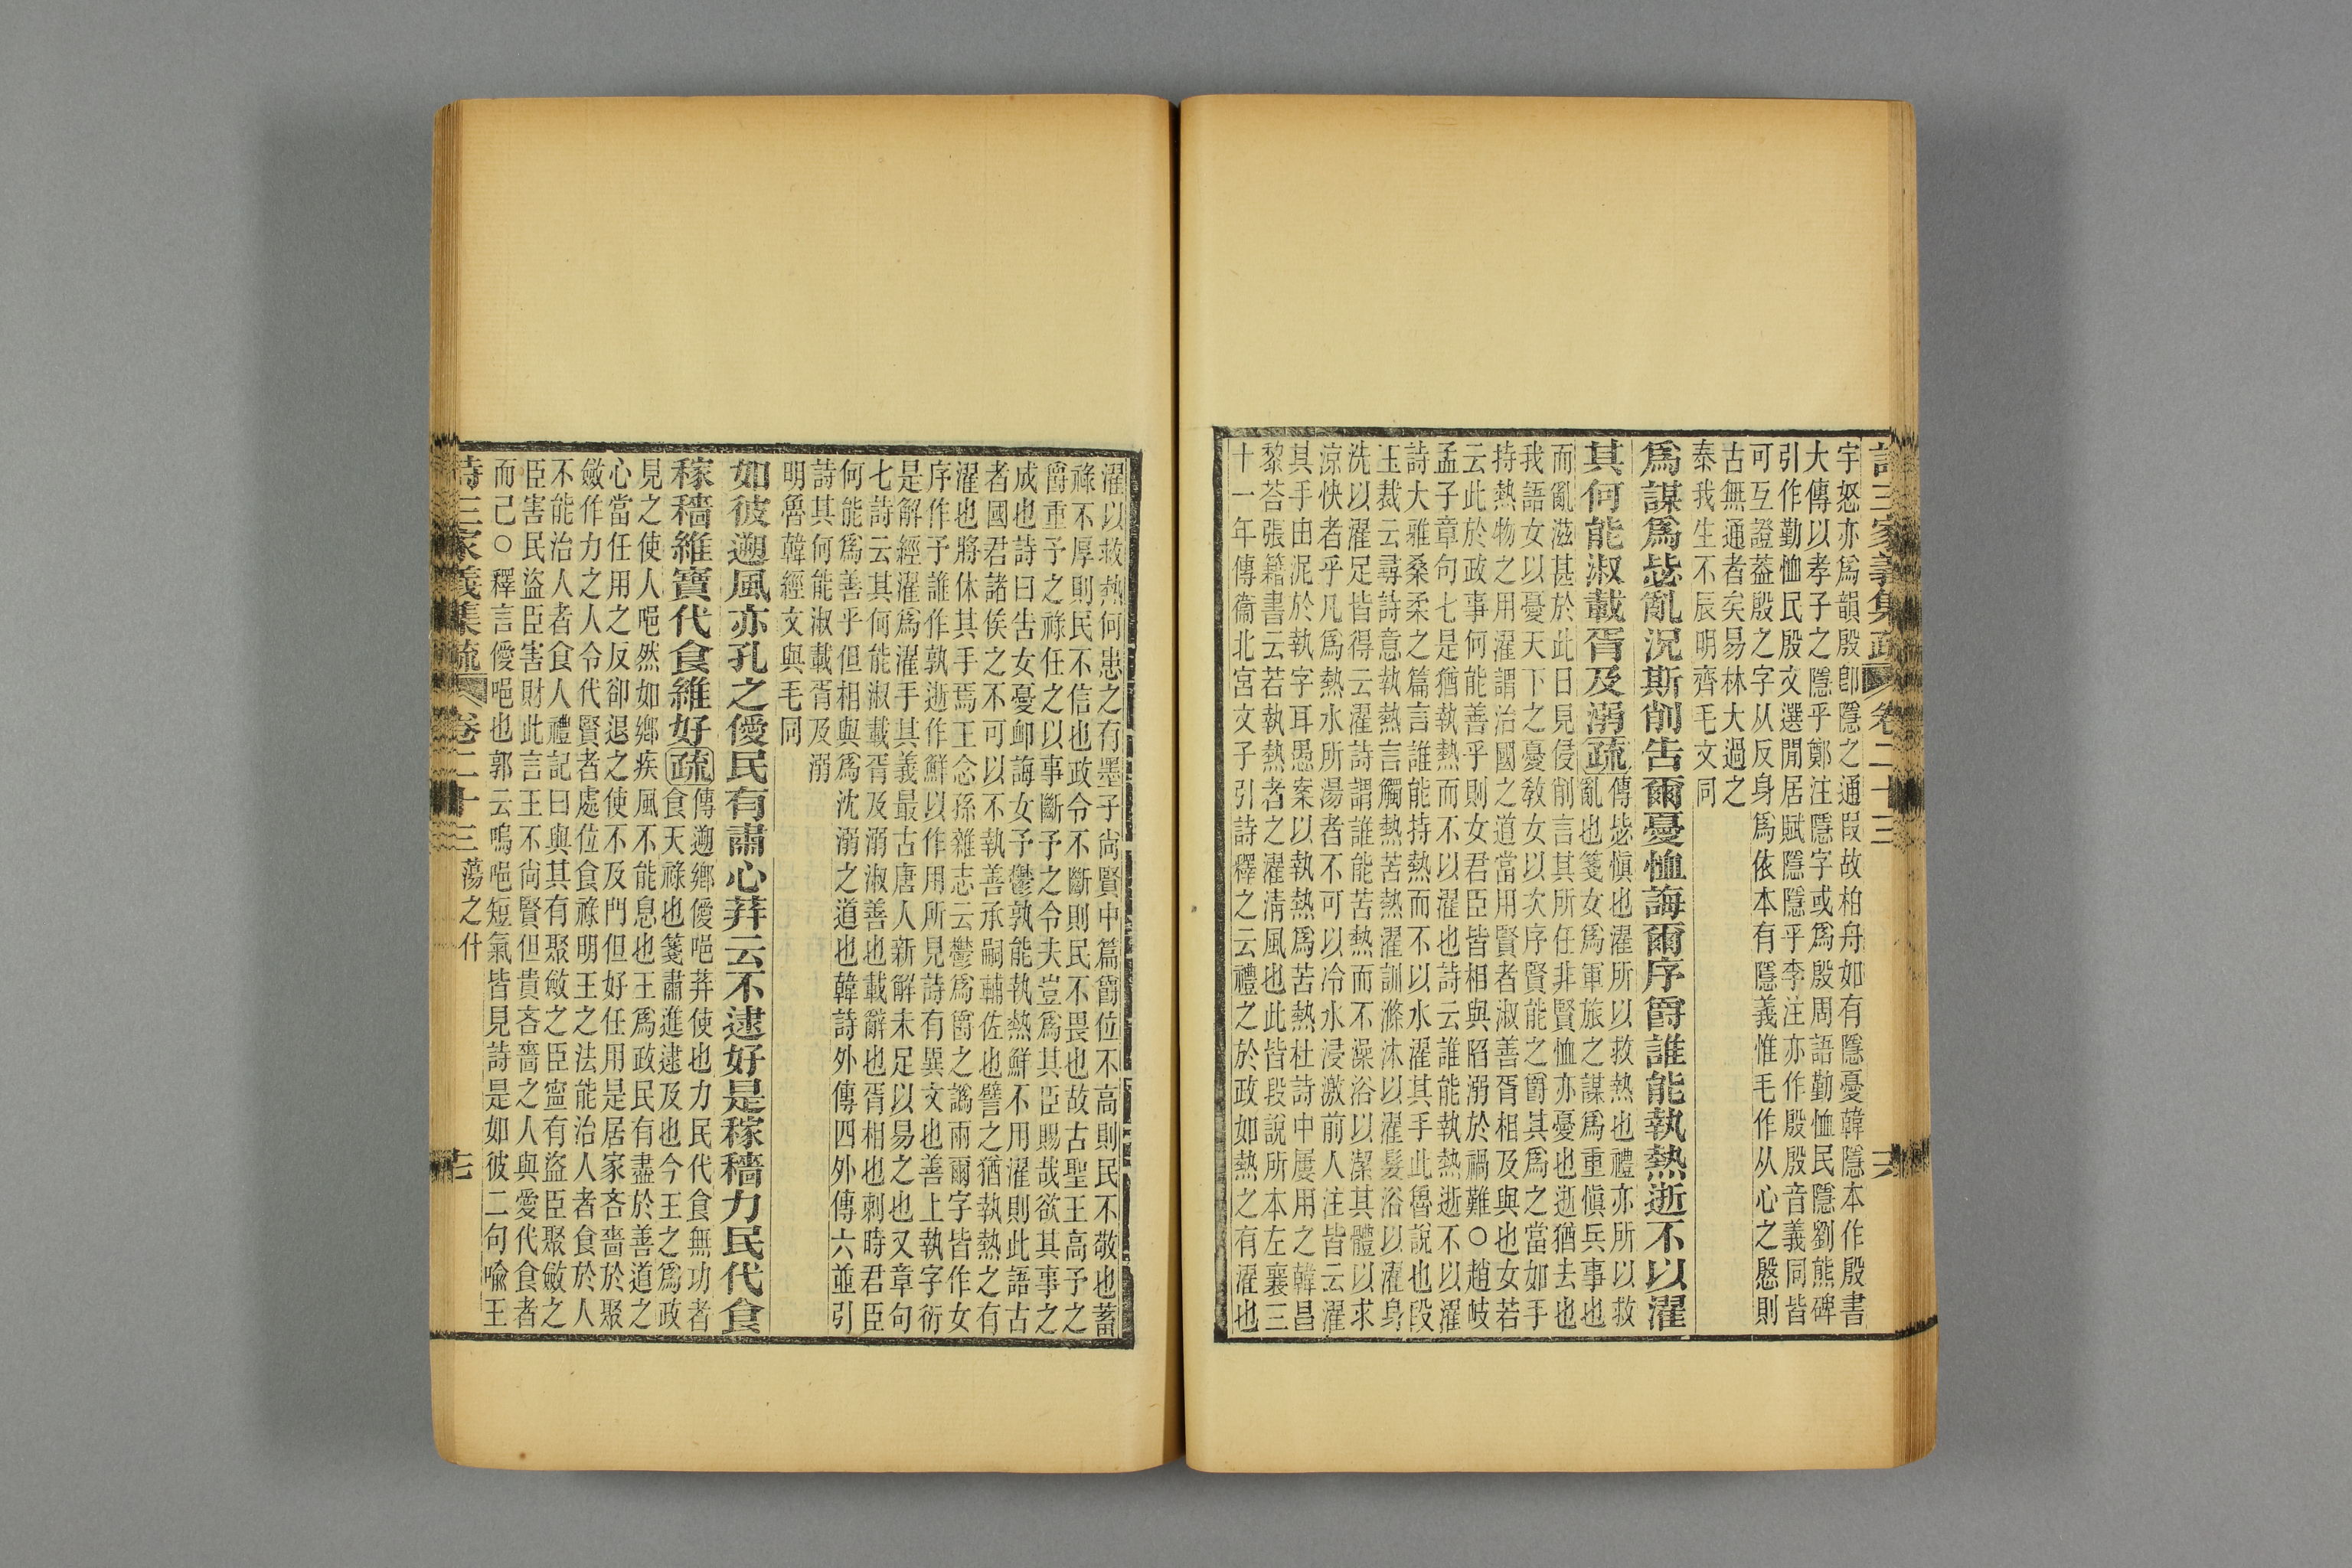 詩三家義集疏 卷二十三 十六
宇怒亦爲韻殷卽隱之通叚故柏舟如有隱憂韓隱本作殷書
大傳以孝子之隱乎鄭注隱字或爲殷周語勤恤民隱劉熊碑
引作勤恤民殷文選閒居賦隱隱乎李注亦作殷殷音義同皆
可互證葢殷之字从反身爲依本有隱義惟毛作从心之慇則
古無通者矣易林大過之
秦我生不辰明齊毛文同
爲謀爲毖亂況斯削告爾憂恤誨爾序爵誰能執熱逝不以濯
其何能淑載胥及溺疏傳毖愼也濯所以救熱也禮亦所以救
亂也箋女爲軍旅之謀爲重愼兵事也
而亂滋甚於此日見侵削言其所任非賢恤亦憂也逝猶去也
我語女以憂天下之憂敎女以次序賢能之爵其爲之當如手
持熱物之用濯謂治國之道當用賢者淑善胥相及與也女若
云此於政事何能善乎則女君臣皆相與陷溺於禍難○趙岐
孟子章句七是猶執熱而不以濯也詩云誰能執熱逝不以濯
詩大雅桑柔之篇言誰能持熱而不以水濯其手此魯說也段
玉裁云尋詩意執熱言觸熱苦熱濯訓滌沐以濯髮浴以濯身
洗以濯足皆得云濯詩謂誰能苦熱而不澡浴以潔其體以求
涼快者乎凡爲熱水所湯者不可以冷水浸激前人注皆云濯
其手由泥於執字耳愚案以執熱爲苦熱杜詩中屢用之韓昌
黎荅張籍書云若執熱者之濯淸風也此皆段說所本左襄三
十一年傳衞北宮文子引詩釋之云禮之於政如熱之有濯也
濯以救熱何患之有墨子尙賢中篇爵位不高則民不敬也蓄
祿不厚則民不信也政令不斷則民不畏也故古聖王高予之
爵重予之祿任之以事斷予之令夫豈爲其臣賜哉欲其事之
成也詩曰告女憂卹誨女予鬱孰能執熱鮮不用濯則此語古
者國君諸侯之不可以不執善承嗣輔佐也譬之猶執熱之有
濯也將休其手焉王念孫雜志云鬱爲爵之譌兩爾字皆作女
序作予誰作孰逝作鮮以作用所見詩有異文也善上執字衍
是解經濯爲濯手其義最古唐人新解未足以易之也又章句
七詩云其何能淑載胥及溺淑善也載辭也胥相也刺時君臣
何能爲善乎但相與爲沈溺之道也韓詩外傳四外傳六並引
詩其何能淑載胥及溺
明魯韓經文與毛同
如彼遡風亦孔之僾民有肅心荓云不逮好是稼穡力民代食
稼穡維寶代食維好疏傳遡鄉僾唈荓使也力民代食無功者
食天祿也箋肅進逮及也今王之爲政
見之使人唈然如鄉疾風不能息也王爲政民有盡於善道之
心當任用之反卻退之使不及門但好任用是居家吝嗇於聚
斂作力之人令代賢者處位食祿明王之法能治人者食於人
不能治人者食人禮記曰與其有聚斂之臣寧有盜臣聚斂之
臣害民盜臣害財此言王不尙賢但貴吝嗇之人與愛代食者
而已○釋言僾唈也郭云嗚唈短氣皆見詩是如彼二句喻王
詩三家義集疏 卷二十三 蕩之什 十七